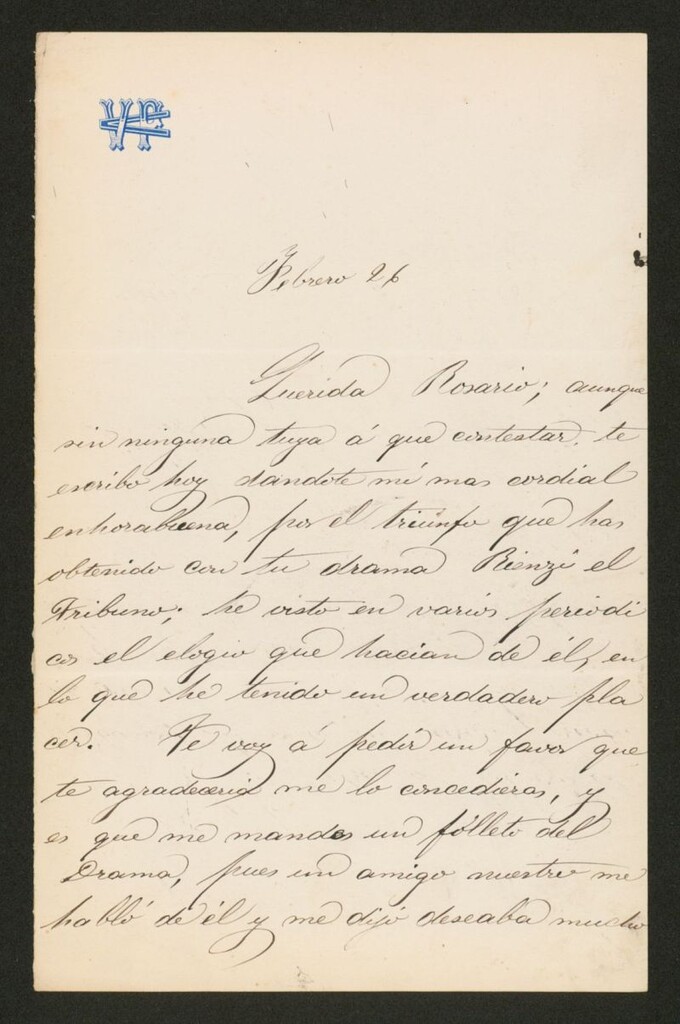 Febrero 26
Querida Rosario; aunque
sin ninguna tuya á que contestar, te
escribo hoy dandote mi mas cordial
enhorabuena, por el triunfo que has
obtenido con tu drama Rienzi el
Tribuno; he visto en varios periodi
cos el elogio que hacian de él, en
lo que he tenido un verdadero pla
cer. Te voy á pedir un favor que
te agradeceria me lo concedieras, y
es que me mandes un fólleto del
Drama, pues un amigo nuestro me
habló de él y me dijo deseaba mucho